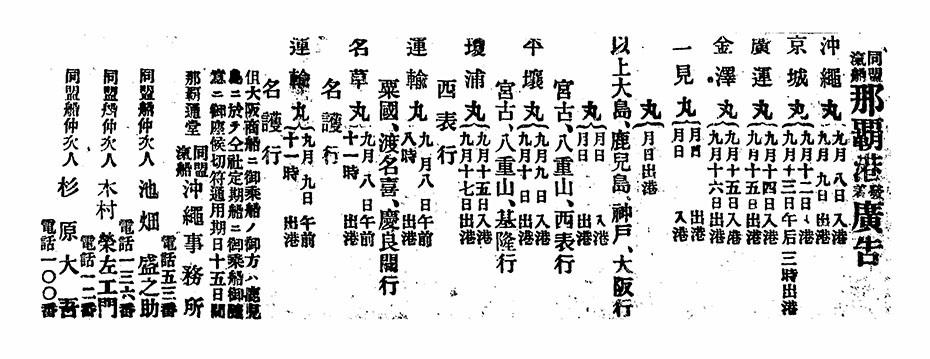 同盟汽船那覇港發着廣告
沖繩丸 九月八日入港
九月九日出港
京城丸 九月十二日入港
九月十三日午后三時出港
廣運丸 九月十四日入港
九月十五日出港
金澤丸 九月十五日入港
九月十六日出港
一見丸 月日出港
月日入港
丸 月日出港
以上大島、鹿兒島、神戸、大阪行
丸 月日入港
月日出港
宮古、八重山、西表行
平壤丸 九月九日入港
九月十日出港
宮古、八重山、基隆行
瓊浦丸 九月十五日入港
九月十七日出港
西表行
運輸丸 九月八日午前
八時出港
粟國、渡名喜、慶良間行
名草丸 九月八日午前
十一時出港
名護行
運輸丸 九月九日午前
十一時出港
名護行
但大阪商船ニ御乘船ノ御方ハ鹿兒
島ニ於テ仝社定期船ニ御乘船御隨
意ニ御座候切符通用期日十五日間
那覇通堂 同盟汽船沖繩事務所
電話五三番
同盟船仲次人 池畑盛之助
電話一三六番
同盟船仲次人 木村榮左工門
電話一一二番
同盟船仲次人 杉原大吾
電話一〇〇番